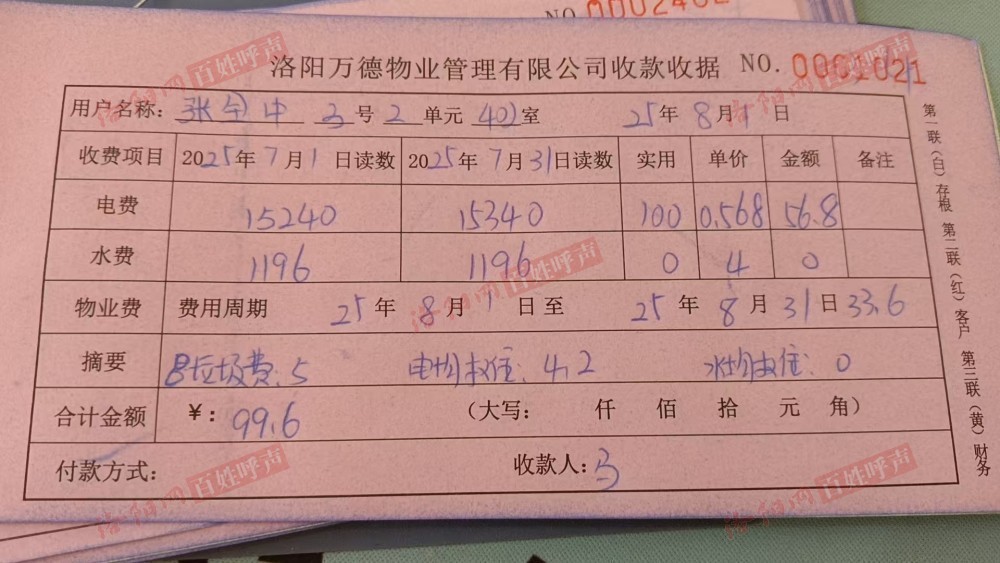 NO 0002402
洛阳万德物业管理有限公司收款收据 NO. 0001021
用户名称: 张 中 3号 2单元 402室 25年8月1日
收费项目 2025年7月1日读数 2025年7月31日读数 实用 单价 金额 备注
电费 15240 15340 100 0.568 56.8
水费 1196 1196 0 4 0
物业费 费用周期 25年8月1日至 25年8月31日 33.6
摘要 8垃圾费:5 电均权住:4.2 水均权住:0
合计金额 ¥: 99.6 (大写: 仟 佰 拾 元 角)
付款方式: 收款人:马
第一联(白)存根 第二联(红)客户 第三联(黄)财务
洛阳网 百姓呼声
洛阳网 百姓呼声
洛阳网 百姓呼声
洛阳网 百姓呼声
洛阳网 百姓呼声